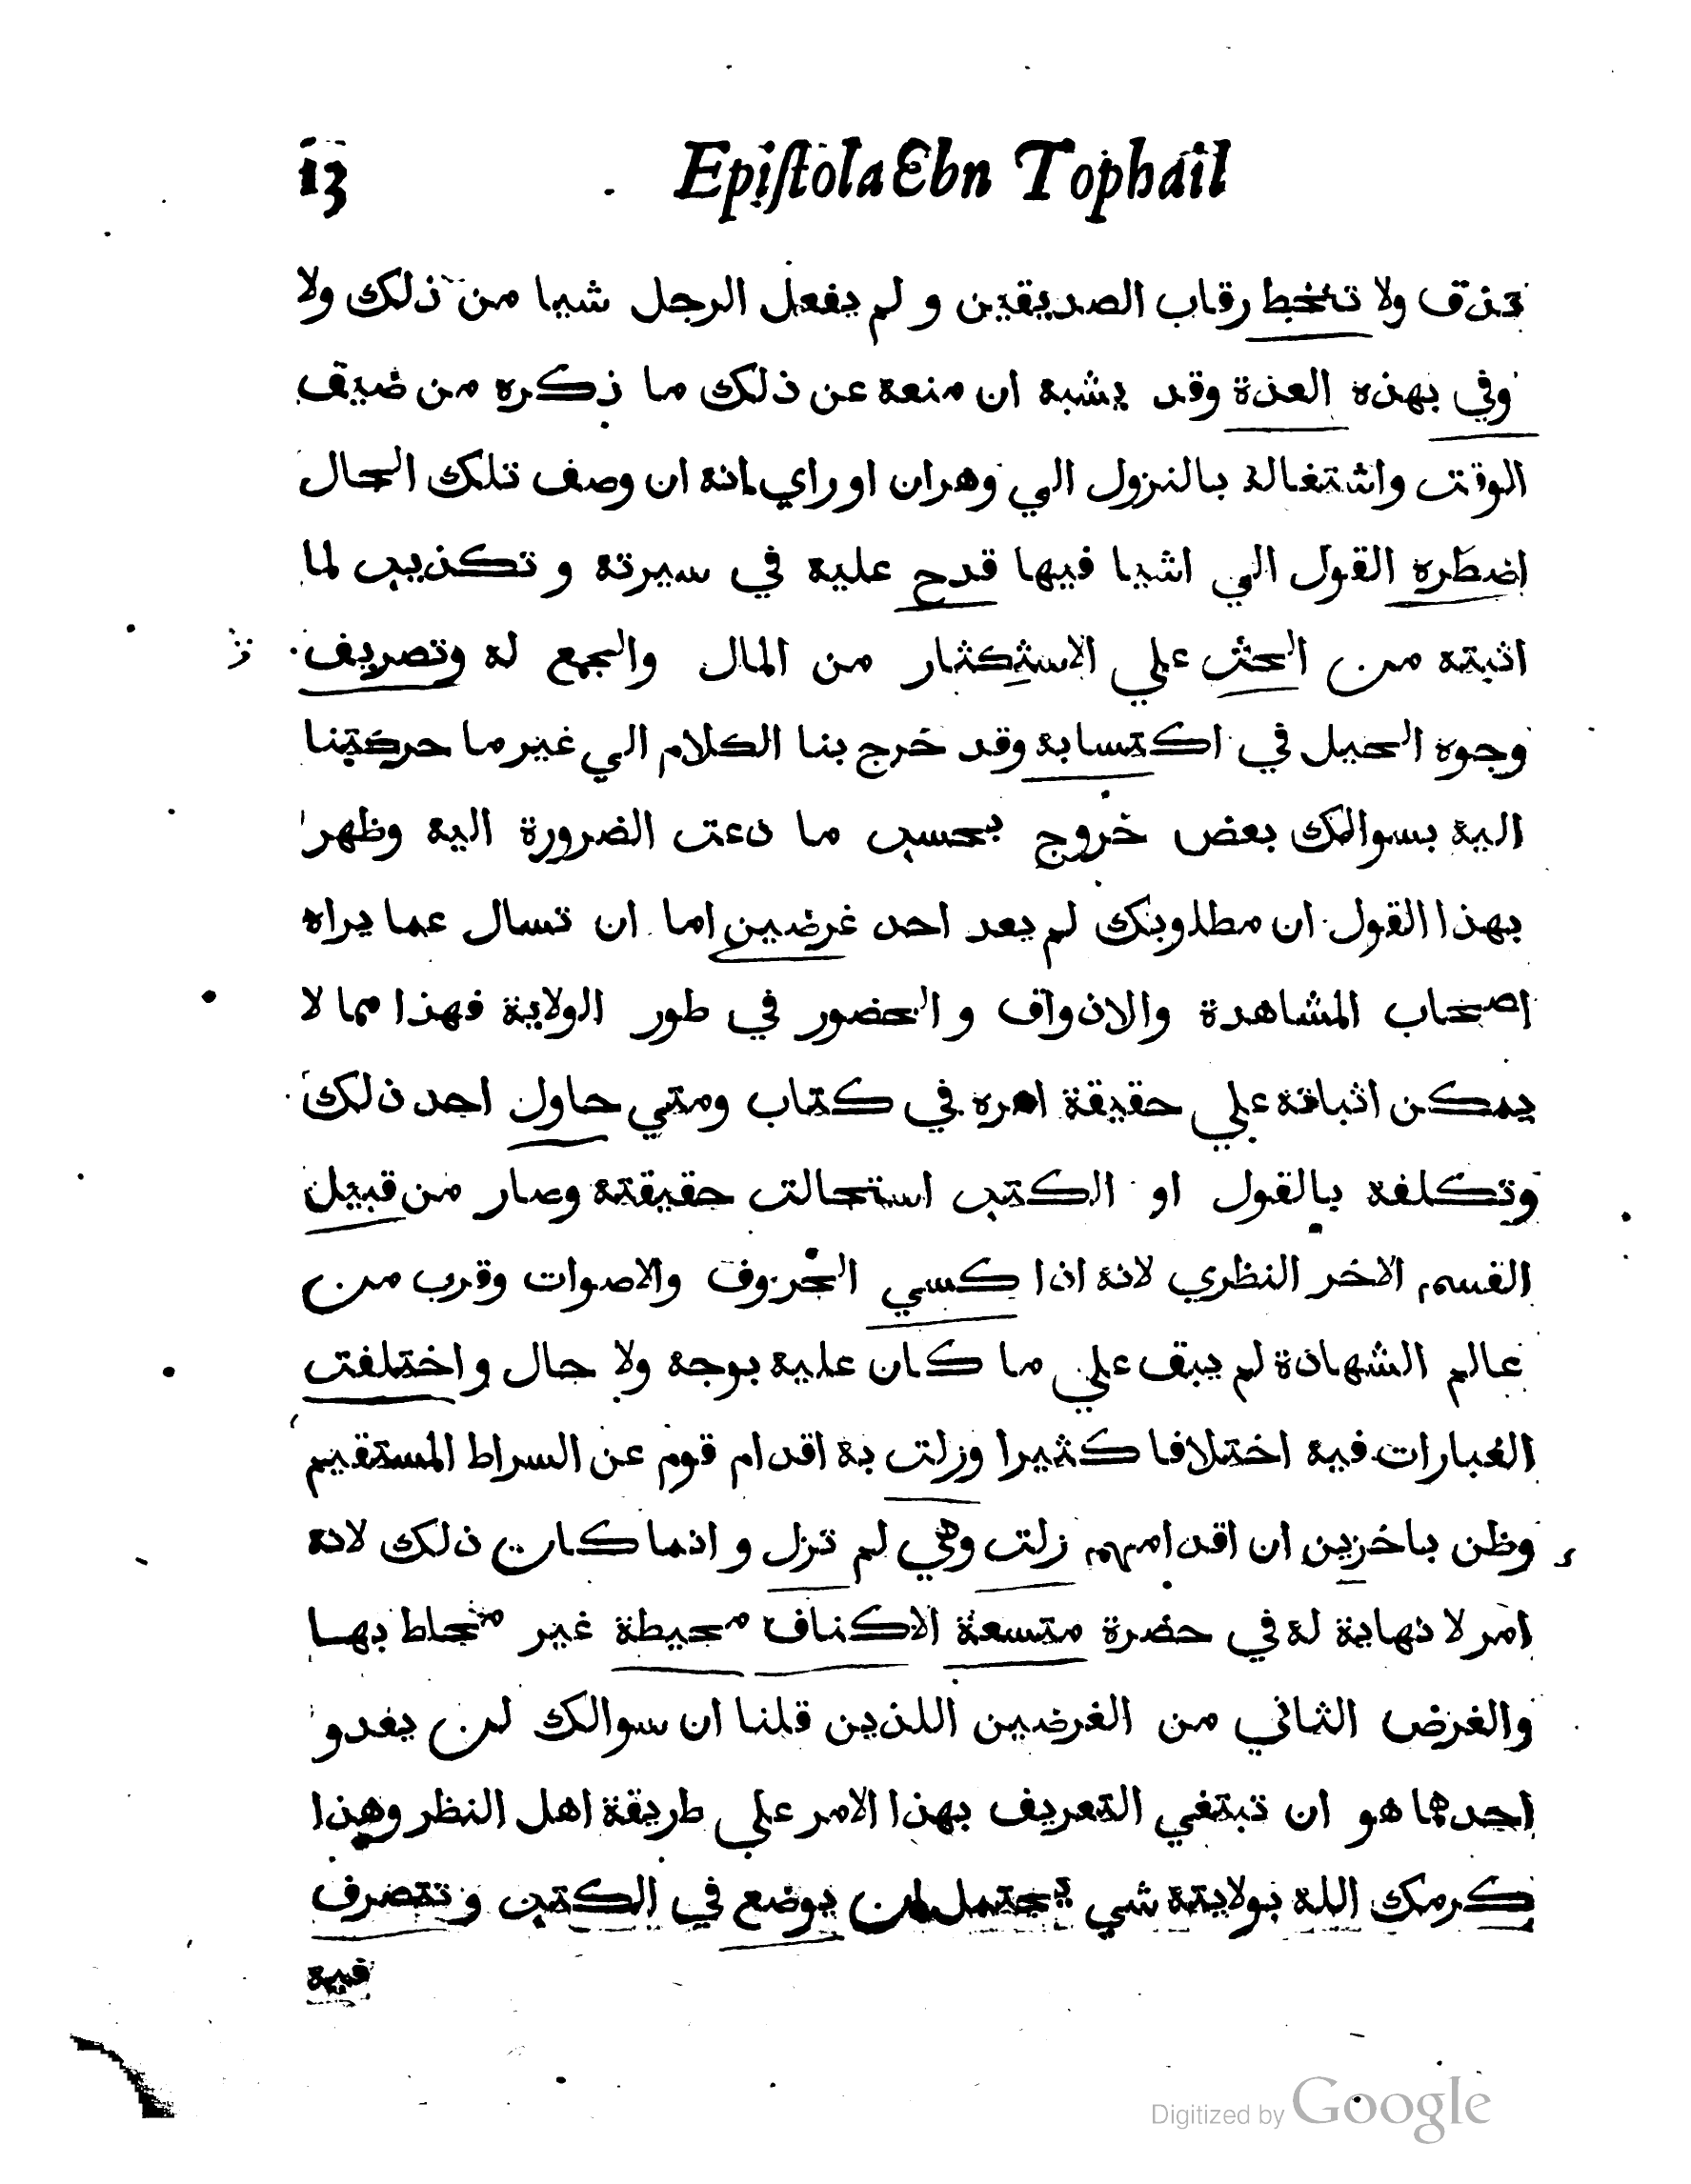 13 Epistola Ebn Tophail
تذق ولا تتخط رقاب الصديقين و لم يفعل الرجل شيا من ذلك ولا
وفي بهذه العذة وقد يشبة ان منعة عن ذلك ما ذكره من ضيق
الوقت واشتغالة بالنزول الي وهران او راي انة ان وصف تلك الحال
اضطره القول الي اشيا فيها قدح علية في سيرتة و تكذيب لما
اثبتة من الحث علي الاستكثار من المال والجمع لة وتصريف
وجوة الحيل في اكتسابة وقد خرج بنا الكلام الي غير ما حركتنا
الية بسوالك بعض خروج بحسب ما دعت الضرورة الية وظهر
بهذا القول ان مطلوبك لم يعد احد غرضين اما ان تسال عما يراه
اصحاب المشاهدة والاذواق و الحضور في طور الولاية فهذا مما لا
يمكن اثباتة علي حقيقة امره في كتاب ومتي حاول احد ذلك
وتكلفة بالقول او الكتب استحالت حقيقتة وصار من قبيل
القسم الاخر النظري لانة اذا كسي الحروف والاصوات وقرب من
عالم الشهادة لم يبق علي ما كان علية بوجة ولا حال و اختلفت
العبارات فية اختلافا كثيرا وزلت بة اقدام قوم عن السراط المستقيم
وظن باخرين ان اقدامهم زلت وهي لم تزل و انما كان ذلك لانة
امر لا نهاية لة في حضرة متسعة الاكناف محيطة غير محاط بها
والغرض الثاني من الغرضين اللذين قلنا ان سوالك لن يعدو
احدهما هو ان تبتغي التعريف بهذا الامر علي طريقة اهل النظر وهذا
كرمك اللة بولايتة شي يحتمل ان يوضع في الكتب و تتصرف
فية
Digitized by Google